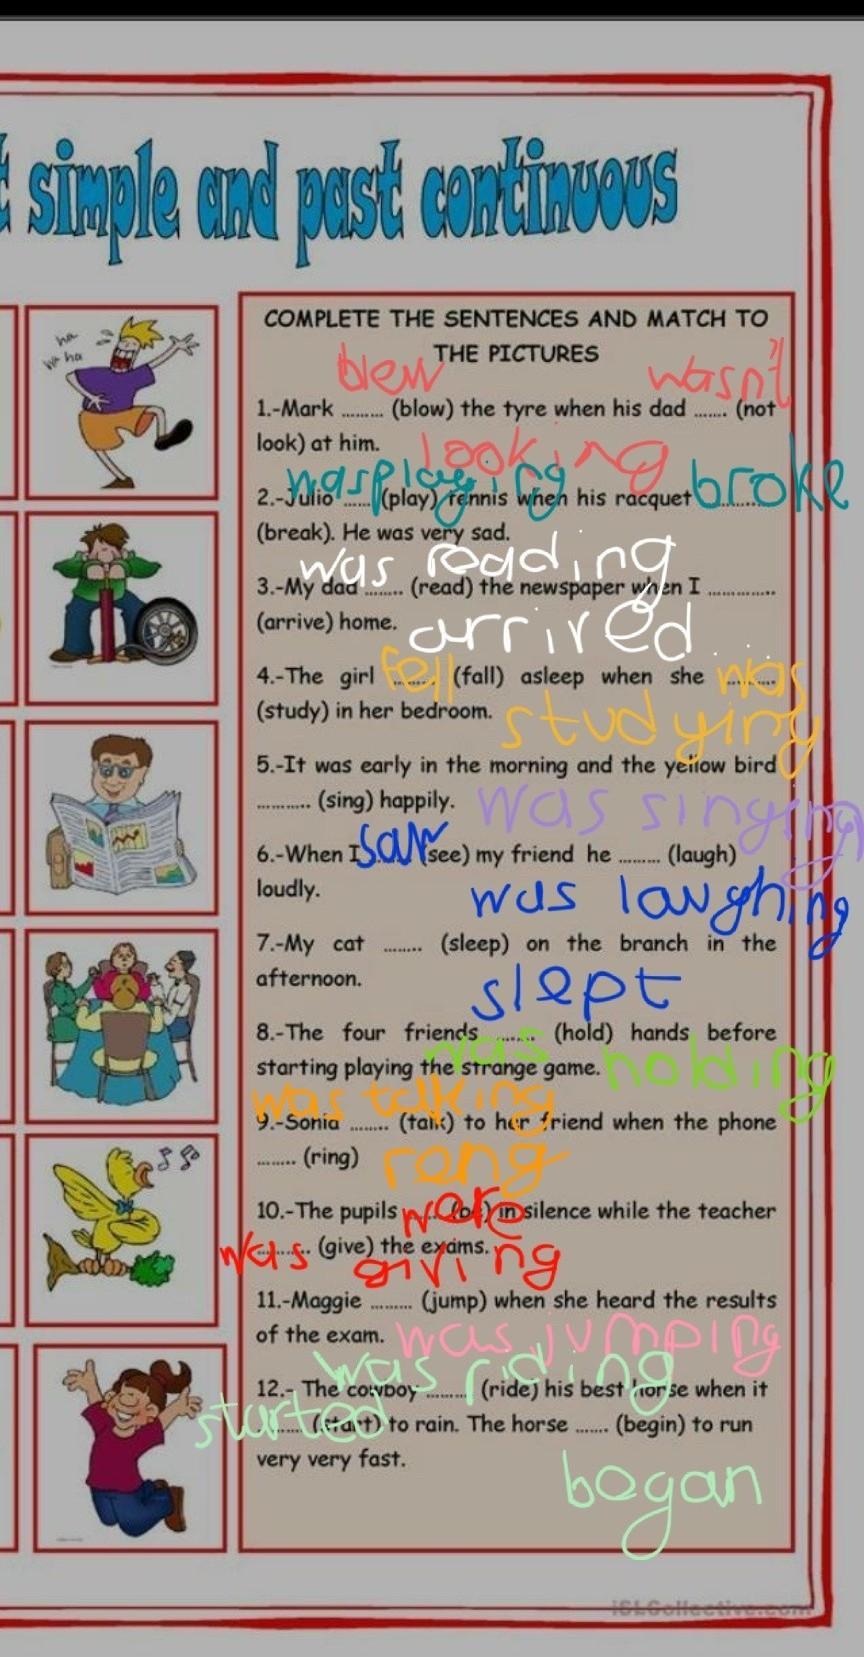 simple and past continuous
ha
ha ha
COMPLETE THE SENTENCES AND MATCH TO
THE PICTURES
blew wasn't
1.-Mark ........ (blow) the tyre when his dad ...... (not
look) at him. looking
was playing broke
2.-Julio ...... (play) tennis when his racquet ..........
(break). He was very sad.
was reading
3.-My dad ........ (read) the newspaper when I .............
(arrive) home. arrived
4.-The girl fell (fall) asleep when she was
(study) in her bedroom. studying
5.-It was early in the morning and the yellow bird
........... (sing) happily. was singing
6.-When I saw (see) my friend he ........ (laugh)
loudly. was laughing
7.-My cat ........ (sleep) on the branch in the
afternoon. slept
8.-The four friends ....... (hold) hands before
starting playing the strange game. was holding
was talking
9.-Sonia ........ (talk) to her friend when the phone
........ (ring) rang
10.-The pupils were (be) in silence while the teacher
........... (give) the exams. was giving
11.-Maggie ......... (jump) when she heard the results
of the exam. was jumping
was riding
12.- The cowboy ......... (ride) his best horse when it
started (start) to rain. The horse ....... (begin) to run
very very fast.
began
iSLCollective.com